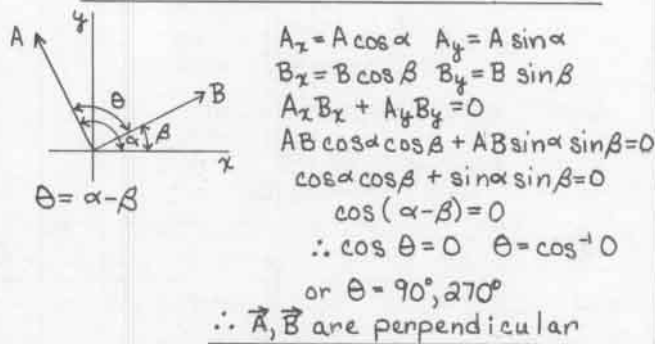 y
A
B
θ
α
β
x
θ = α - β
A_x = A cos α  A_y = A sin α
B_x = B cos β  B_y = B sin β
A_x B_x + A_y B_y = 0
AB cos α cos β + AB sin α sin β = 0
cos α cos β + sin α sin β = 0
cos (α - β) = 0
∴ cos θ = 0  θ = cos⁻¹ 0
or θ = 90°, 270°
∴ A⃗, B⃗ are perpendicular